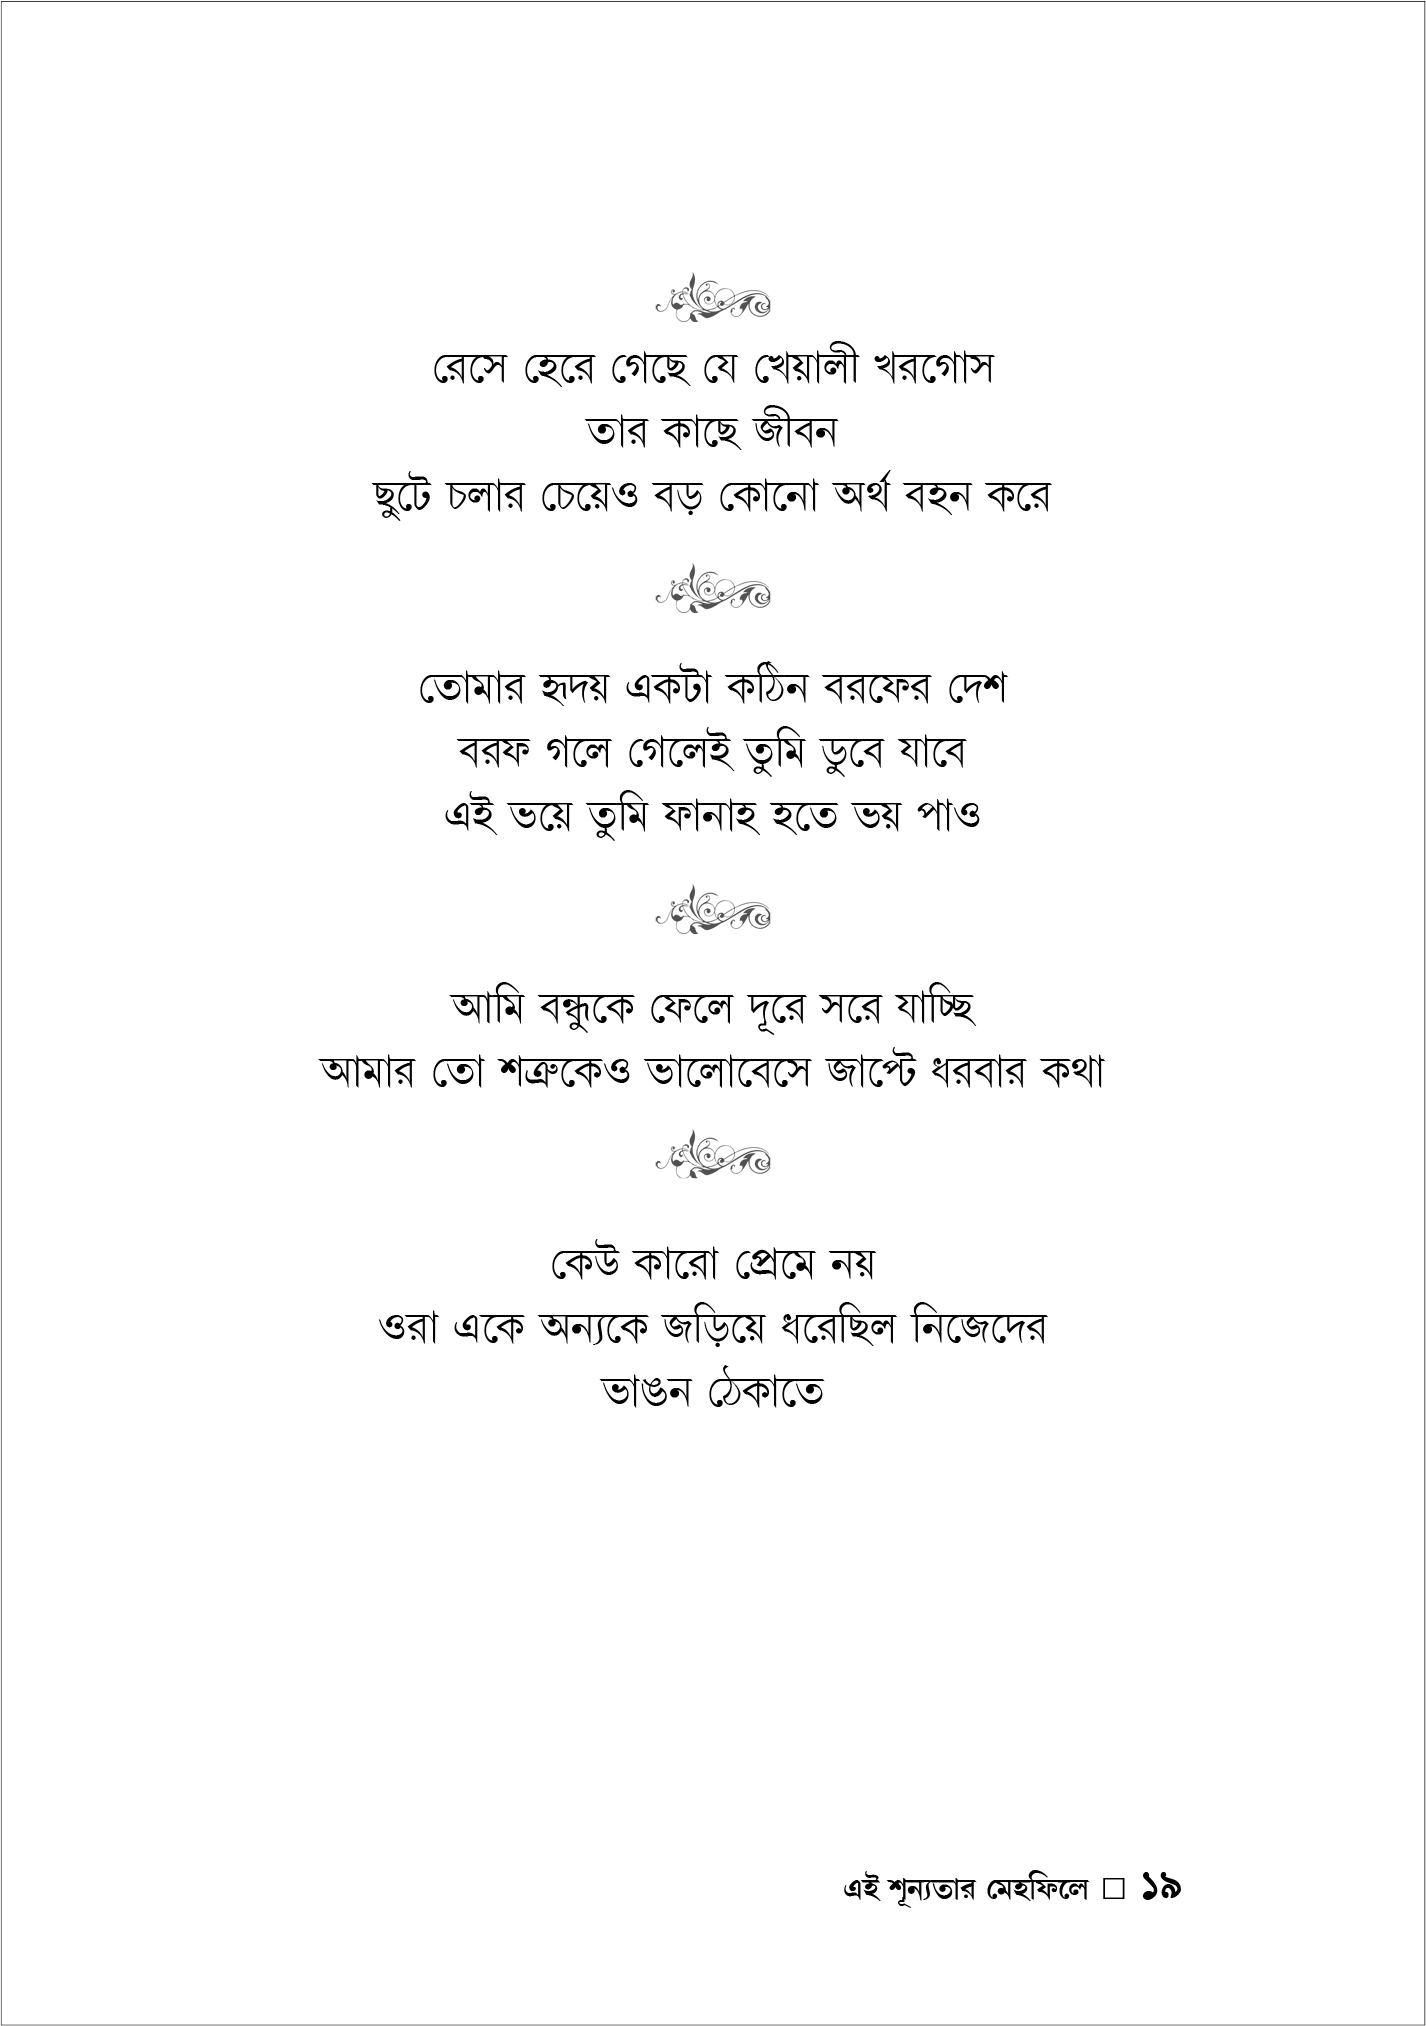 রেসে হেরে গেছে যে খেয়ালী খরগোস
তার কাছে জীবন
ছুটে চলার চেয়েও বড় কোনো অর্থ বহন করে
তোমার হৃদয় একটা কঠিন বরফের দেশ
বরফ গলে গেলেই তুমি ডুবে যাবে
এই ভয়ে তুমি ফানাহ হতে ভয় পাও
আমি বন্ধুকে ফেলে দূরে সরে যাচ্ছি
আমার তো শত্রুকেও ভালোবেসে জাপ্টে ধরবার কথা
কেউ কারো প্রেমে নয়
ওরা একে অন্যকে জড়িয়ে ধরেছিল নিজেদের
ভাঙন ঠেকাতে
এই শূন্যতার মেহফিলে □ ১৯